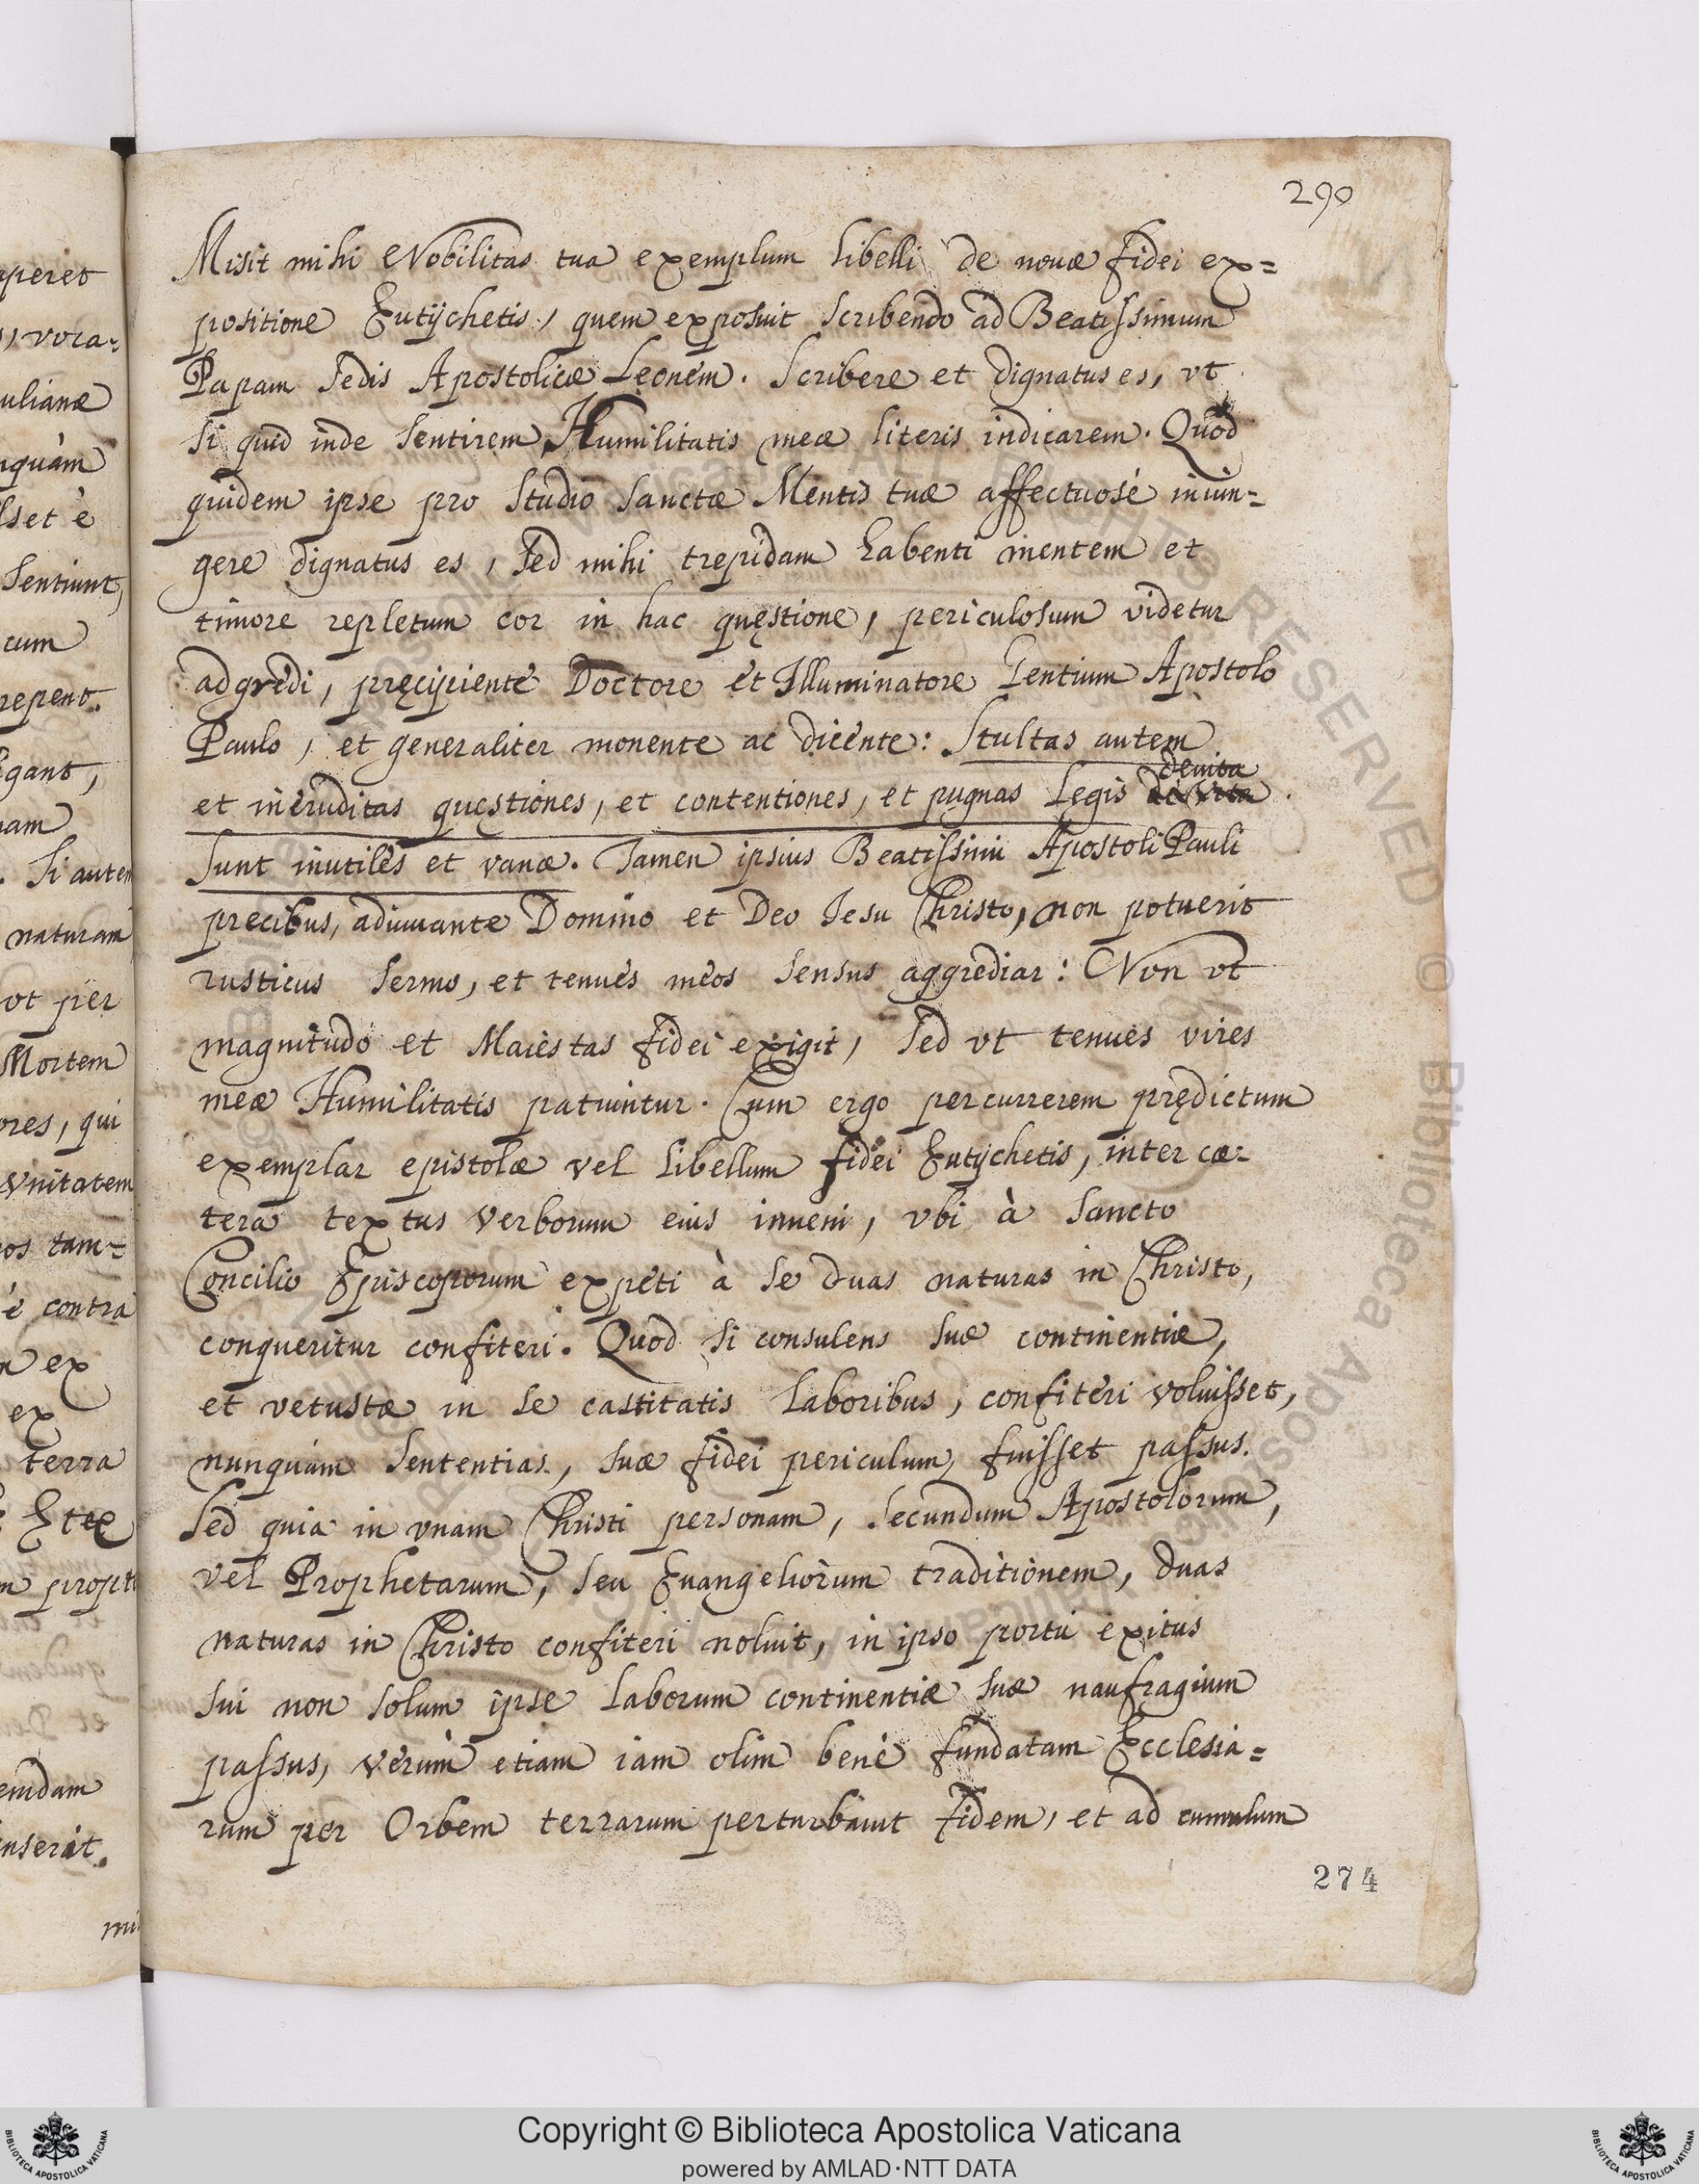 290
Misit mihi Nobilitas tua exemplum libelli de nouæ fidei ex=
positione Eutychetis, quem exposuit scribendo ad Beatissimum
Papam sedis Apostolicæ Leonem. Scribere et dignatus es, vt
si quid inde sentirem, Humilitatis meæ literis indicarem. Quod
quidem ipse pro studio sanctæ Mentis tuæ affectuosè iniun=
gere dignatus es, sed mihi trepidam habenti mentem et
timore repletum cor in hac quęstione, periculosum videtur
adgredi, pręcipiente Doctore et Illuminatore Gentium Apostolo
Paulo, et generaliter monente ac dicente: Stultas autem
deuita
et ineruditas quęstiones, et contentiones, et pugnas Legis de vita.
Sunt inutiles et vanæ. Tamen ipsius Beatissimi Apostoli Pauli
precibus, adiuuante Domino et Deo Iesu Christo, non potuerit
rusticus sermo, et tenues meos sensus aggrediar: Non vt
magnitudo et Maiestas fidei exigit, sed vt tenues vires
meæ Humilitatis patiuntur. Cum ergo percurrerem prędictum
exemplar epistolæ vel libellum fidei Eutychetis, inter cæ=
tera textus verborum eius inueni, vbi à sancto
Concilio Episcoporum expeti à se duas naturas in Christo,
conqueritur confiteri. Quod si consulens suæ continentiæ,
et vetustæ in se castitatis laboribus, confiteri voluisset,
nunquàm sententias, suæ fidei periculum, fuisset passus.
Sed quia in vnam Christi personam, secundum Apostolorum,
vel Prophetarum, seu Euangeliorum traditionem, duas
naturas in Christo confiteri noluit, in ipso portu exitus
sui non solum ipse laborum continentiæ suæ naufragium
passus, verùm etiam iam olim benè fundatam Ecclesia=
rum per Orbem terrarum perturbauit fidem, et ad cumulum
274
aperet
, voca=
ulianæ
nquàm
sset è
sentiunt,
cum
repent.
gant,
nam
. Si autem
naturam
vt per
Mortem
ores, qui
vnitatem
os tam=
è contra
n ex
ex
terra
Et ex
m propt
emdam
nserit.
mi
Copyright © Biblioteca Apostolica Vaticana
powered by AMLAD·NTT DATA
BIBLIOTECA APOSTOLICA VATICANA
BIBLIOTECA APOSTOLICA VATICANA